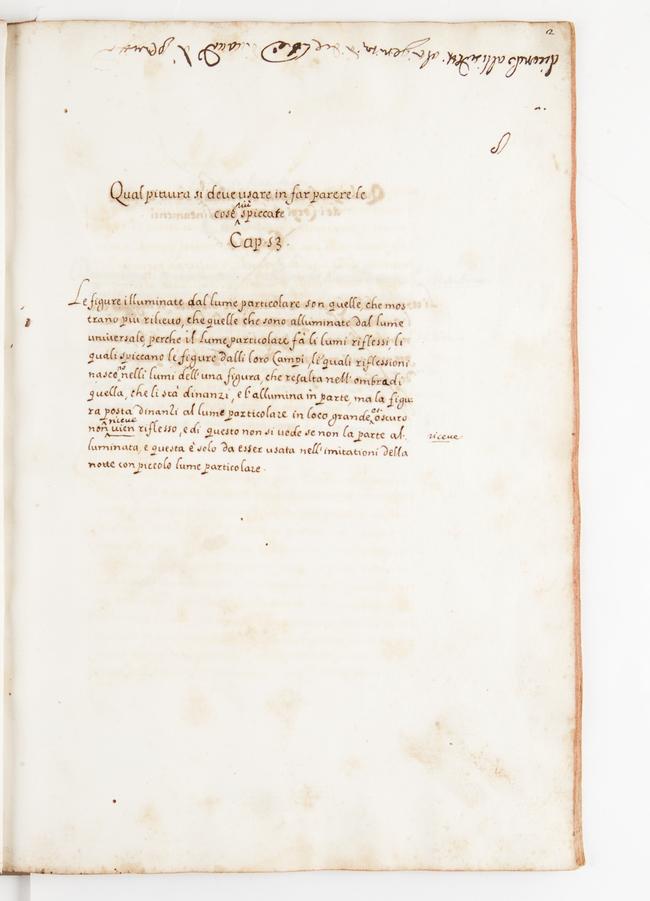 2
Qual pittura si deve usare in far parere le
cose più spiccate
Cap. 53.
Le figure illuminate dal lume particolare son quelle, che mos
trano più rilievo, che quelle che sono alluminate dal lume
universale, perche il lume particolare fà li lumi riflessi li
quali spiccano le figure dalli loro Campi, le quali riflessioni
nascono nelli lumi dell'una figura, che resulta nell'ombra di
quella, che li stà dinanzi, e l'allumina in parte, ma la figu
ra posta dinanzi al lume particolare in loco grande, et oscuro
non riceve vien riflesso, e di questo non si vede se non la parte al
luminata, e questa è solo da esser usata nell'imitationi della
notte con piccolo lume particolare.
riceve